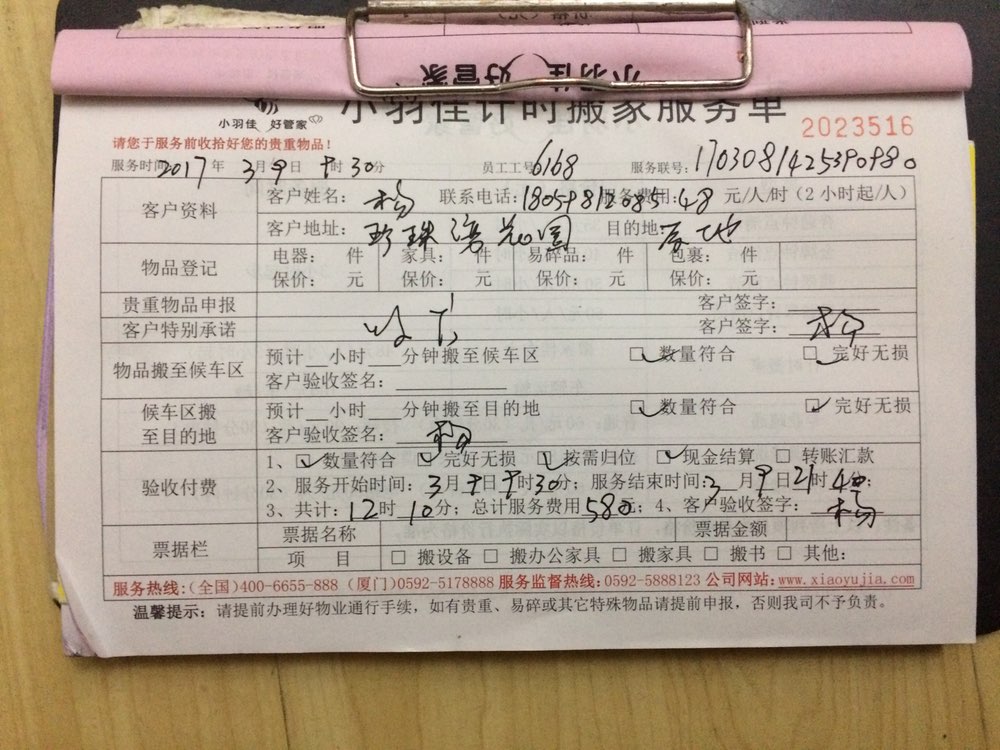 小羽佳 好管家
小羽佳 好管家
小羽佳计时搬家服务单
2023516
请您于服务前收拾好您的贵重物品!
服务时间 2017年 3月9日 9时30分 员工工号 6168 服务联号: 170308142539098
客户资料 客户姓名: 杨 联系电话: 18059812085 服务费用: 48 元/人/时(2小时起/人)
客户地址: 珍珠湾花园 目的地:
物品登记 电器: 件 家具: 件 易碎品: 件 包裹: 件
保价: 元 保价: 元 保价: 元 保价: 元
贵重物品申报 客户签字:
客户特别承诺 客户签字: 杨
物品搬至候车区 预计__小时___分钟搬至候车区 数量符合 完好无损
客户验收签名:
候车区搬至目的地 预计__小时___分钟搬至目的地 数量符合 完好无损
客户验收签名: 杨
验收付费 1、 数量符合 完好无损 按需归位 现金结算 转账汇款
2、服务开始时间: 3月9日9时30分; 服务结束时间: 3月9日21时40;
3、共计: 12时10分; 总计服务费用 580元; 4、客户验收签字: 杨
票据栏 票据名称 票据金额
项 目 搬设备 搬办公家具 搬家具 搬书 其他:
服务热线:(全国)400-6655-888 (厦门)0592-5178888 服务监督热线:0592-5888123 公司网站:www.xiaoyujia.com
温馨提示: 请提前办理好物业通行手续,如有贵重、易碎或其它特殊物品请提前申报,否则我司不予负责。